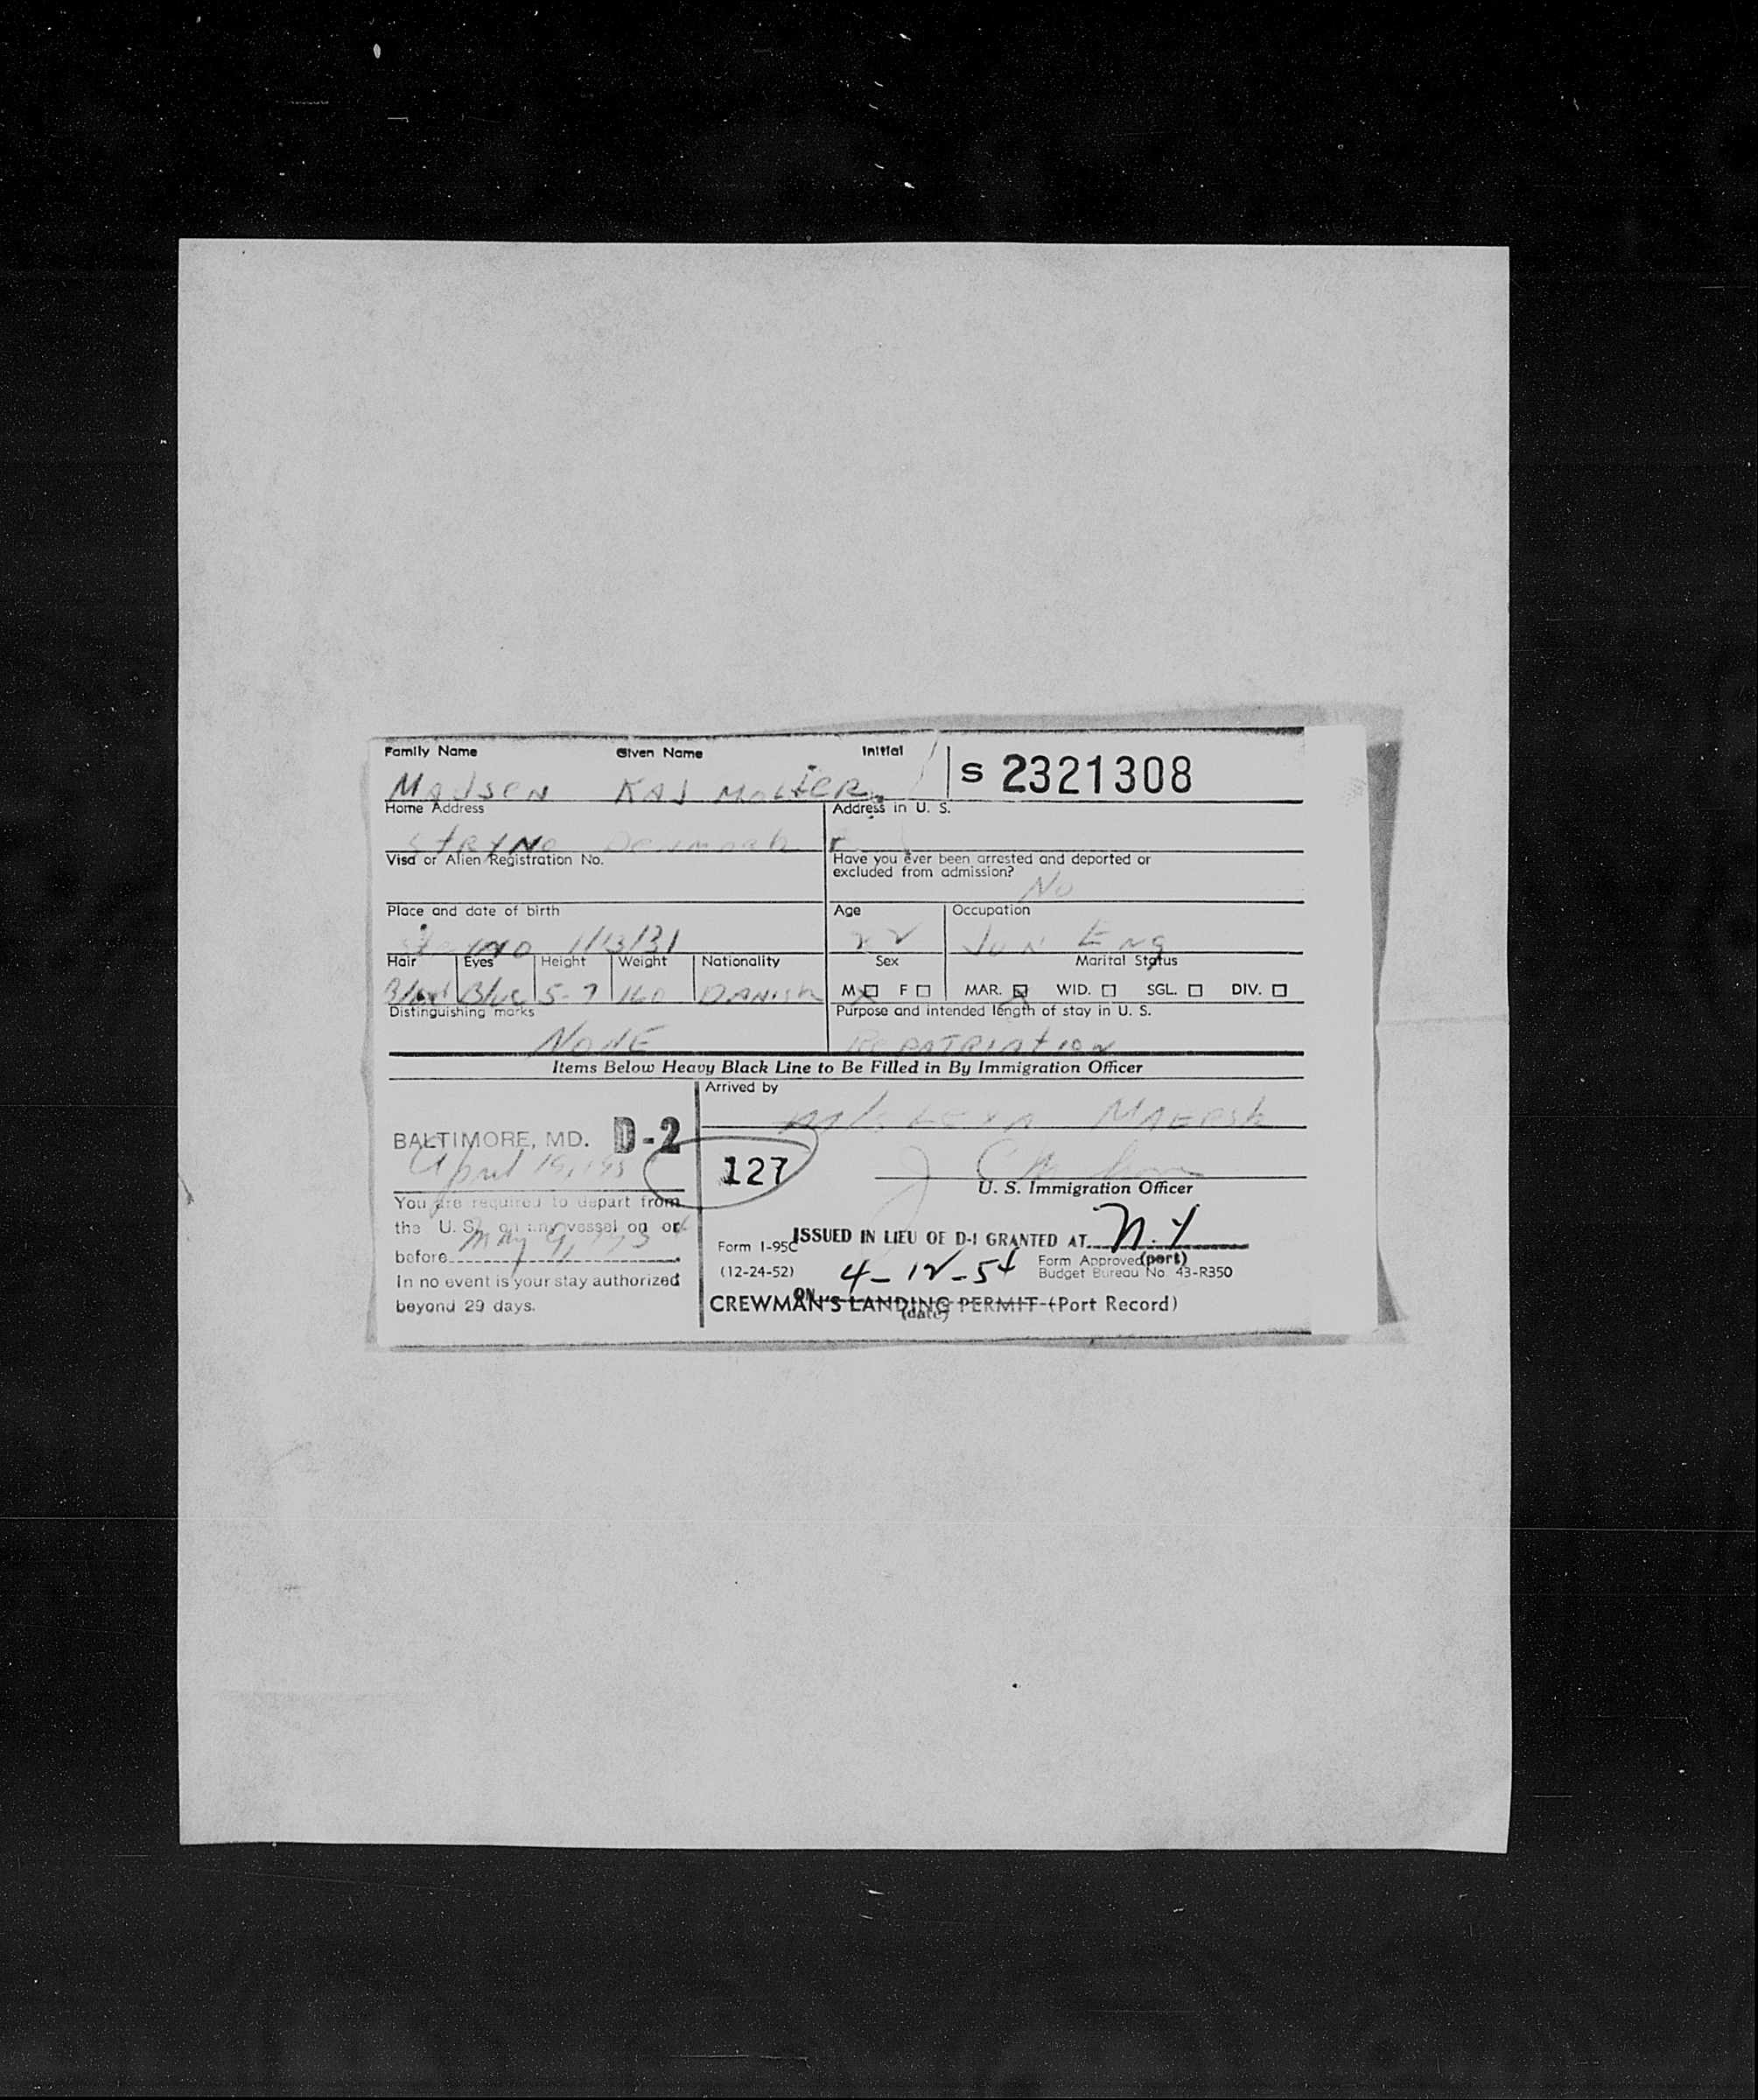 Family Name Given Name Initial
S 2321308
MADSEN KAJ MOLLER
Home Address Address in U. S.
STRYNO Denmark
Visa or Alien Registration No. Have you ever been arrested and deported or
excluded from admission?
No
Place and date of birth Age Occupation
STRYNO 1/13/31 22 JUN Eng
Hair Eyes Height Weight Nationality Sex Marital Status
Blond Blue 5-7 160 DANISH M ☐ F ☐ MAR. ☒ WID. ☐ SGL. ☐ DIV. ☐
Distinguishing marks Purpose and intended length of stay in U. S.
NONE REPATRIATION
Items Below Heavy Black Line to Be Filled in By Immigration Officer
Arrived by
MAERSK
BALTIMORE, MD. D-2
April 195
127
U. S. Immigration Officer
You are required to depart from
the U. S. on any vessel on or
before May
In no event is your stay authorized
beyond 29 days.
ISSUED IN LIEU OF D-1 GRANTED AT N.Y
Form I-95C
(port)
(12-24-52)
4-12-54
Form Approved
Budget Bureau No. 43-R350
ON
CREWMAN'S LANDING PERMIT (Port Record)
(date)